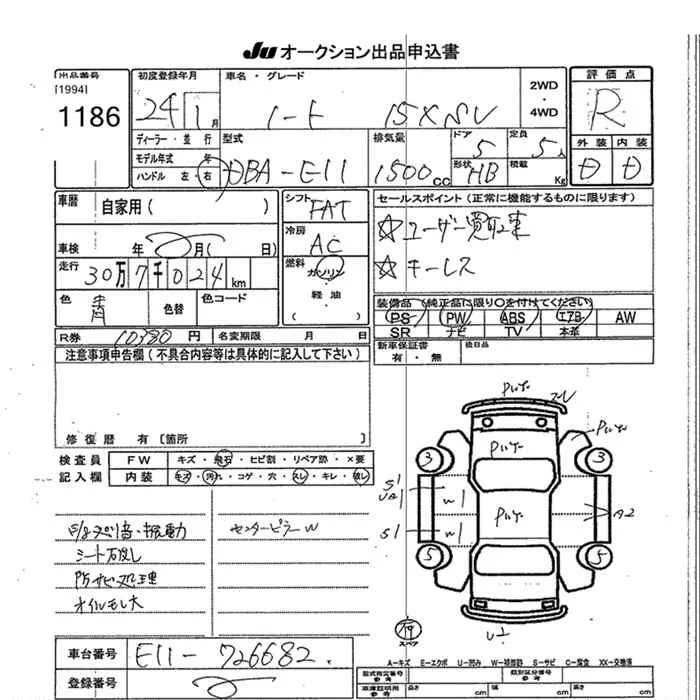 JU オークション出品申込書
出品番号
[1994]
1186
初度登録年月
24 1 月
車名・グレード
ノート 15X SV
2WD
・
4WD
評価点
R
ディーラー・並行
モデル年式 年
ハンドル 左・右
型式
DBA-E11
排気量
1500 cc
ドア
5
形状
HB
定員
5 人
積載
Kg
外装 内装
D D
車歴 自家用( )
車検 年 月( 日)
走行 30万7千024 km
色 青 色替 色コード
シフト
FAT
冷房
AC
燃料
ガソリン
・
軽油
セールスポイント(正常に機能するものに限ります)
☆ユーザー買取車
☆キーレス
装備品(純正品に限り〇を付けてください)
PS PW ABS エアB AW
SR ナビ TV 本革
新車保証書
有・無
後日品
R券 10780 円 名変期限 月 日
注意事項申告欄(不具合内容等は具体的に記入して下さい)
修復歴 有[箇所 ]
検査員
記入欄
FW キズ・飛石・ヒビ割・リペア跡・×要
内装 キズ・汚れ・コゲ・穴・スレ・キレ・破レ
E/gスベリ音・振動
シート破レ
防サビ処理
オイルモレ大
センターピラーW
3 3
5 5
S1
UA1
W1
S1
W1
A2
U2
付
スペア
車台番号 E11-726682
登録番号
A-キズ E-エクボ U-凹み W-補修跡 S-サビ C-腐食 XX-交換済
型式指定番号
参考
類別区分番号
参考
車庫証明用
参考
長さ cm
幅 cm
高さ cm